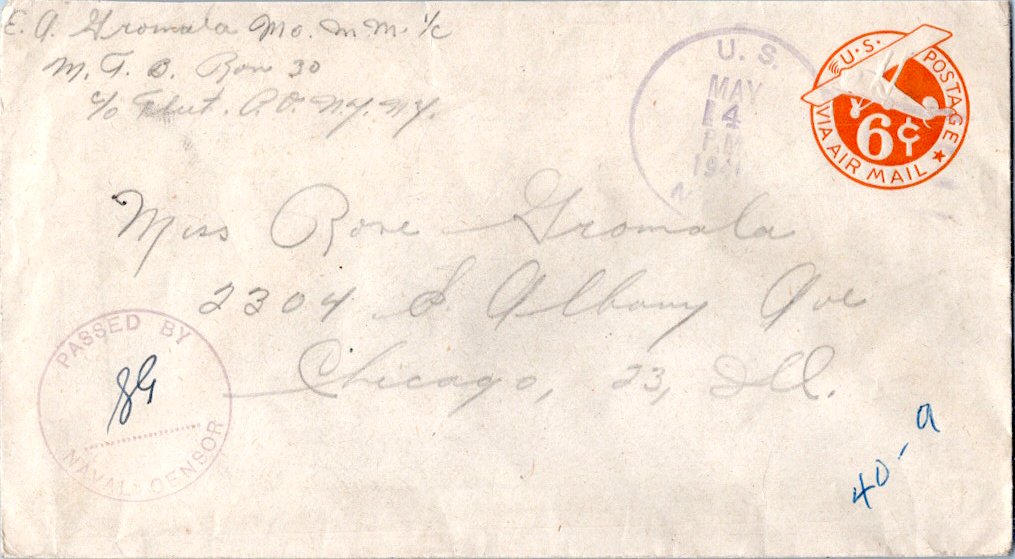 E. A. Gromala Mo. M. M. 1/c
M. T. B. Ron 30
c/o Fleet. P. O. N.Y. N.Y.
U. S.
MAY
14
P.M.
U.S. POSTAGE
6¢
VIA AIR MAIL
Miss Rose Gromala
2304 S. Albany Ave
Chicago, 23, Ill.
PASSED BY
NAVAL CENSOR
40-a